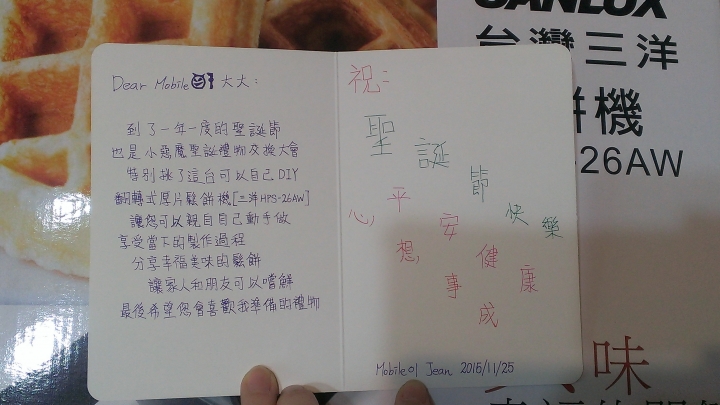 Dear Mobile 大大:
到了一年一度的聖誕節
也是小惡魔聖誕禮物交換大會
特別挑了這台可以自己DIY
翻轉式厚片鬆餅機[三洋HPS-26AW]
讓您可以親自自己動手做
享受當下的製作過程
分享幸福美味的鬆餅
讓家人和朋友可以嚐鮮
最後希望您會喜歡我準備的禮物
祝:
聖誕節快樂
平安健康
心想事成
Mobile01 Jean 2015/11/25
SANLUX
台灣三洋
餅機
-26AW
味